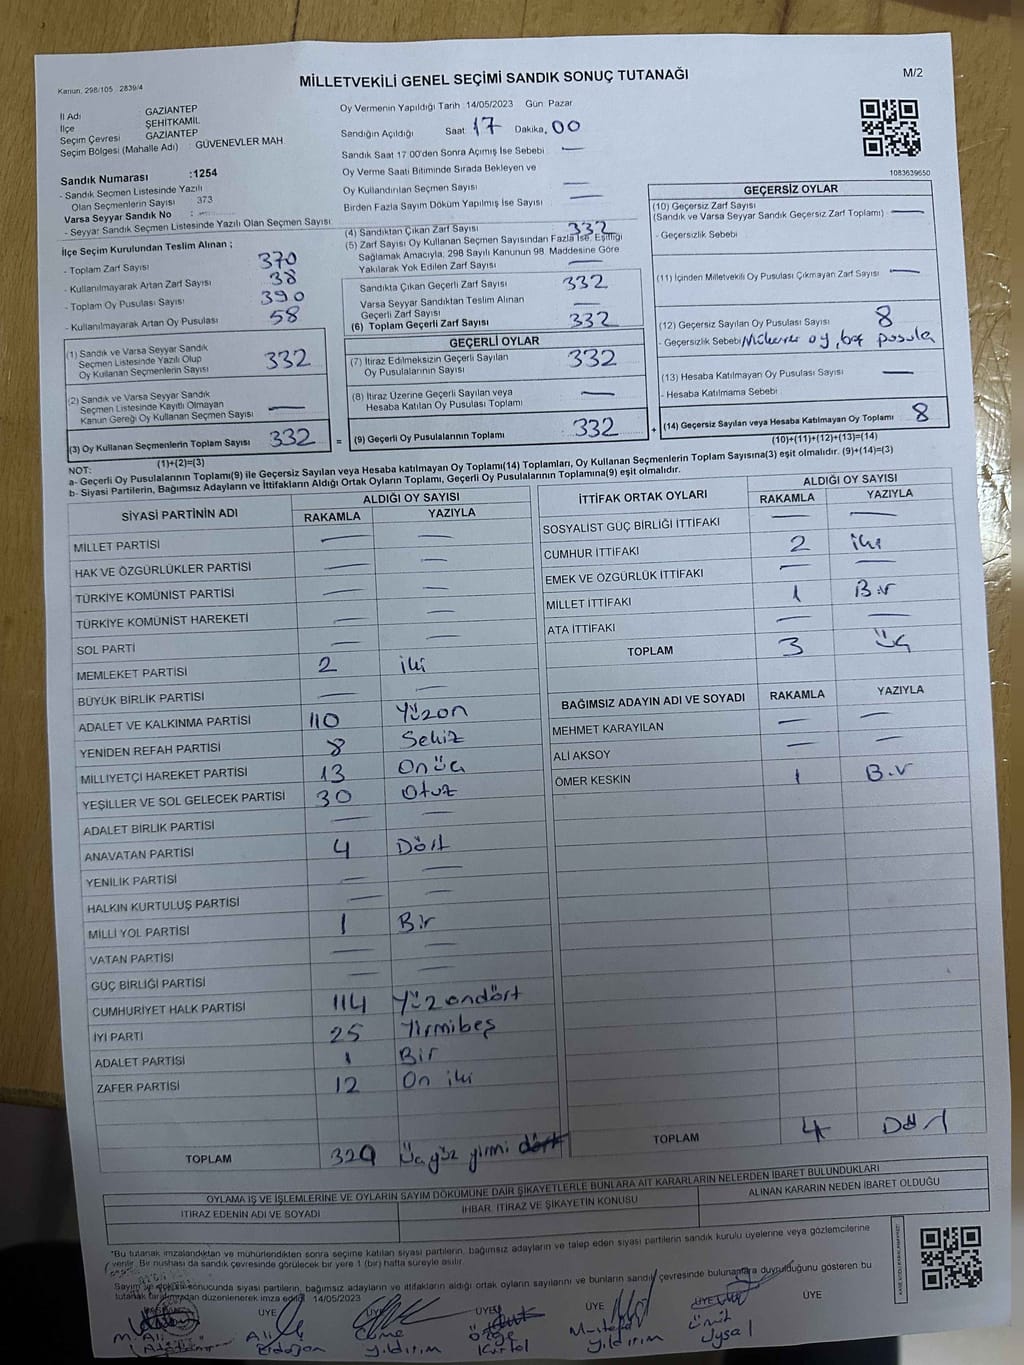 Kanun, 298/105 2839/4
MİLLETVEKİLİ GENEL SEÇİMİ SANDIK SONUÇ TUTANAĞI
M/2
İl Adı : GAZİANTEP
İlçe ŞEHİTKAMİL
Seçim Çevresi GAZİANTEP
Seçim Bölgesi (Mahalle Adı) : GÜVENEVLER MAH
Sandık Numarası :1254
- Sandık Seçmen Listesinde Yazılı
Olan Seçmenlerin Sayısı 373
Varsa Seyyar Sandık No :
- Seyyar Sandık Seçmen Listesinde Yazılı Olan Seçmen Sayısı
Oy Vermenin Yapıldığı Tarih : 14/05/2023 Gün: Pazar
Sandığın Açıldığı Saat: 17 Dakika, 00
Sandık Saat 17.00'den Sonra Açımış İse Sebebi : —
Oy Verme Saati Bitiminde Sırada Bekleyen ve
Oy Kullandırılan Seçmen Sayısı —
Birden Fazla Sayım Döküm Yapılmış İse Sayısı —
1083639650
İlçe Seçim Kurulundan Teslim Alınan ;
- Toplam Zarf Sayısı 370
- Kullanılmayarak Artan Zarf Sayısı 38
- Toplam Oy Pusulası Sayısı 390
- Kullanılmayarak Artan Oy Pusulası 58
(1) Sandık ve Varsa Seyyar Sandık
Seçmen Listesinde Yazılı Olup
Oy Kullanan Seçmenlerin Sayısı 332
(2) Sandık ve Varsa Seyyar Sandık
Seçmen Listesinde Kayıtlı Olmayan
Kanun Gereği Oy Kullanan Seçmen Sayısı —
(3) Oy Kullanan Seçmenlerin Toplam Sayısı 332
(1)+(2)=(3)
(4) Sandıktan Çıkan Zarf Sayısı 332
(5) Zarf Sayısı Oy Kullanan Seçmen Sayısından Fazla İse, Eşitliği
Sağlamak Amacıyla, 298 Sayılı Kanunun 98. Maddesine Göre
Yakılarak Yok Edilen Zarf Sayısı —
Sandıkta Çıkan Geçerli Zarf Sayısı 332
Varsa Seyyar Sandıktan Teslim Alınan
Geçerli Zarf Sayısı —
(6) Toplam Geçerli Zarf Sayısı 332
GEÇERLİ OYLAR
(7) İtiraz Edilmeksizin Geçerli Sayılan
Oy Pusulalarının Sayısı 332
(8) İtiraz Üzerine Geçerli Sayılan veya
Hesaba Katılan Oy Pusulası Toplamı —
= (9) Geçerli Oy Pusulalarının Toplamı 332 +
GEÇERSİZ OYLAR
(10) Geçersiz Zarf Sayısı
(Sandık ve Varsa Seyyar Sandık Geçersiz Zarf Toplamı) —
- Geçersizlik Sebebi
(11) İçinden Milletvekili Oy Pusulası Çıkmayan Zarf Sayısı —
(12) Geçersiz Sayılan Oy Pusulası Sayısı 8
- Geçersizlik Sebebi Mükerrer oy, boş pusula
(13) Hesaba Katılmayan Oy Pusulası Sayısı —
- Hesaba Katılmama Sebebi
(14) Geçersiz Sayılan veya Hesaba Katılmayan Oy Toplamı 8
(10)+(11)+(12)+(13)=(14)
NOT:
a- Geçerli Oy Pusulalarının Toplamı(9) ile Geçersiz Sayılan veya Hesaba katılmayan Oy Toplamı(14) Toplamları, Oy Kullanan Seçmenlerin Toplam Sayısına(3) eşit olmalıdır. (9)+(14)=(3)
b- Siyasi Partilerin, Bağımsız Adayların ve İttifakların Aldığı Ortak Oyların Toplamı, Geçerli Oy Pusulalarının Toplamına(9) eşit olmalıdır.
SİYASİ PARTİNİN ADI ALDIĞI OY SAYISI
RAKAMLA YAZIYLA
MİLLET PARTİSİ — —
HAK VE ÖZGÜRLÜKLER PARTİSİ — —
TÜRKİYE KOMÜNİST PARTİSİ — —
TÜRKİYE KOMÜNİST HAREKETİ — —
SOL PARTİ — —
MEMLEKET PARTİSİ 2 iki
BÜYÜK BİRLİK PARTİSİ — —
ADALET VE KALKINMA PARTİSİ 110 Yüzon
YENİDEN REFAH PARTİSİ 8 Sekiz
MİLLİYETÇİ HAREKET PARTİSİ 13 Onüç
YEŞİLLER VE SOL GELECEK PARTİSİ 30 Otuz
ADALET BİRLİK PARTİSİ — —
ANAVATAN PARTİSİ 4 Dört
YENİLİK PARTİSİ — —
HALKIN KURTULUŞ PARTİSİ — —
MİLLİ YOL PARTİSİ 1 Bir
VATAN PARTİSİ — —
GÜÇ BİRLİĞİ PARTİSİ — —
CUMHURİYET HALK PARTİSİ 114 Yüzondört
İYİ PARTİ 25 Yirmibeş
ADALET PARTİSİ 1 Bir
ZAFER PARTİSİ 12 On iki
TOPLAM 320 Üçyüz yirmi dört
İTTİFAK ORTAK OYLARI ALDIĞI OY SAYISI
RAKAMLA YAZIYLA
SOSYALİST GÜÇ BİRLİĞİ İTTİFAKI — —
CUMHUR İTTİFAKI 2 iki
EMEK VE ÖZGÜRLÜK İTTİFAKI — —
MİLLET İTTİFAKI 1 Bir
ATA İTTİFAKI — —
TOPLAM 3 Üç
BAĞIMSIZ ADAYIN ADI VE SOYADI RAKAMLA YAZIYLA
MEHMET KARAYILAN — —
ALİ AKSOY — —
ÖMER KESKİN 1 Bir
TOPLAM 4 Dört
OYLAMA İŞ VE İŞLEMLERİNE VE OYLARIN SAYIM DÖKÜMÜNE DAİR ŞİKAYETLERLE BUNLARA AİT KARARLARIN NELERDEN İBARET BULUNDUKLARI
İTİRAZ EDENİN ADI VE SOYADI İHBAR, İTİRAZ VE ŞİKAYETİN KONUSU ALINAN KARARIN NEDEN İBARET OLDUĞU
"Bu tutanak imzalandıktan ve mühürlendikten sonra seçime katılan siyasi partilerin, bağımsız adayların ve talep eden siyasi partilerin sandık kurulu üyelerine veya gözlemcilerine
verilir. Bir nüshası da sandık çevresinde görülecek bir yere 1 (bir) hafta süreyle asılır
Sayım ve döküm sonucunda siyasi partilerin, bağımsız adayların ve ittifakların aldığı ortak oyların sayılarını ve bunların sandık çevresinde bulunanlara duyrulduğunu gösteren bu
tutanak tarafımızdan düzenlenerek imza edildi. 14/05/2023
ÜYE ÜYE ÜYE ÜYE ÜYE ÜYE
M. Ali Ali Erdoğan Yıldırım Özge Mustafa Yıldırım Ümit Uysal